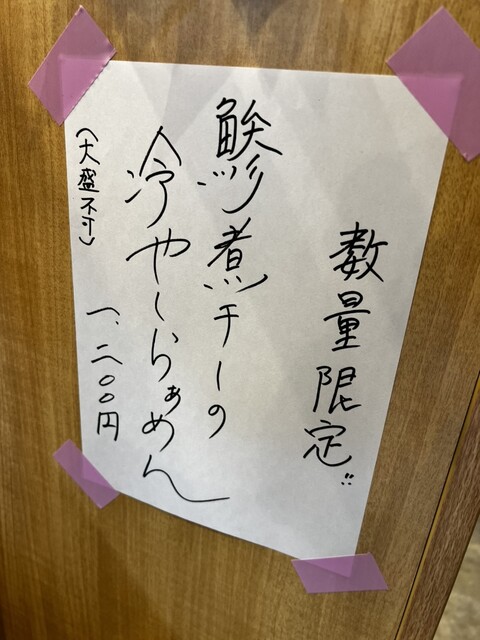 数量限定!!
鯵煮干しの
冷やしらぁめん
(大盛不可)
一、二〇〇円